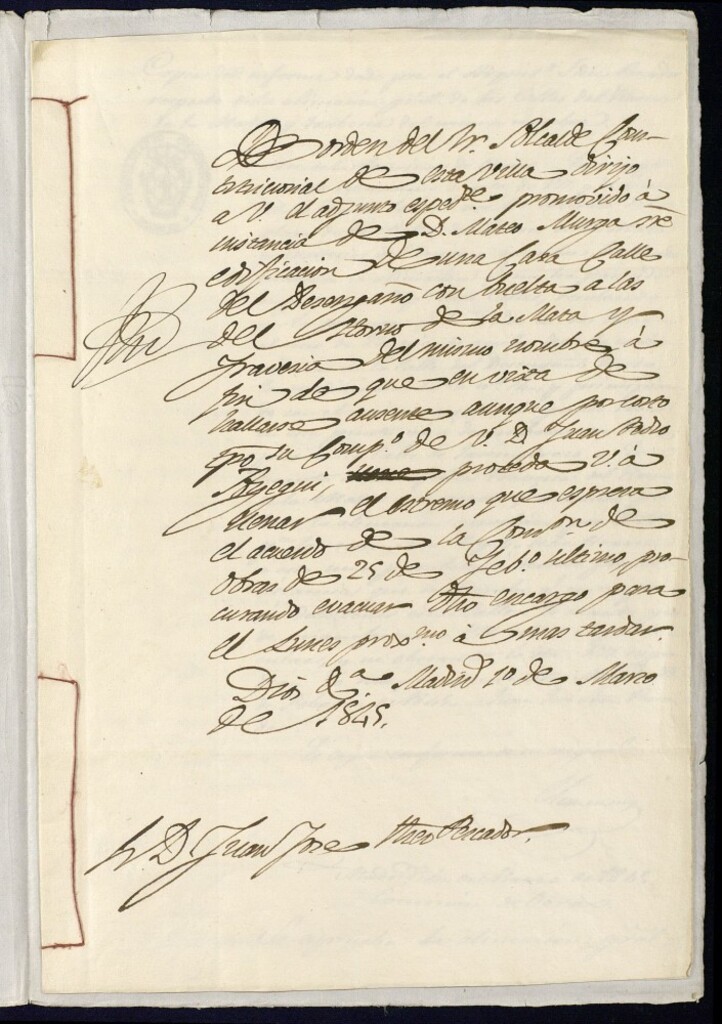 De orden del Sr. Alcalde Cons-
titucional de esta Villa dirijo
a V. el adjunto exped.te promovido à
instancia de D. Mateo Murga sre
edificacion de una Casa Calle
del Desengaño con buelta a las
del Horno de la Mata y
Travesia del mismo nombre, à
fin de que en vista de
hallarse ausente aunque por corto
tpo su Comp.o de V. D. Juan Pedro
Ayegui, proceda V. à
llenar el estremo que espresa
el acuerdo de la Comon. de
Obras de 25 de Feb.o ultimo pro-
curando evacuar dho encargo para
el Lunes prox.mo à mas tardar.
Dios &.a Madrid 1o de Marzo
de 1845.
S. D. Juan Jose Pescador.